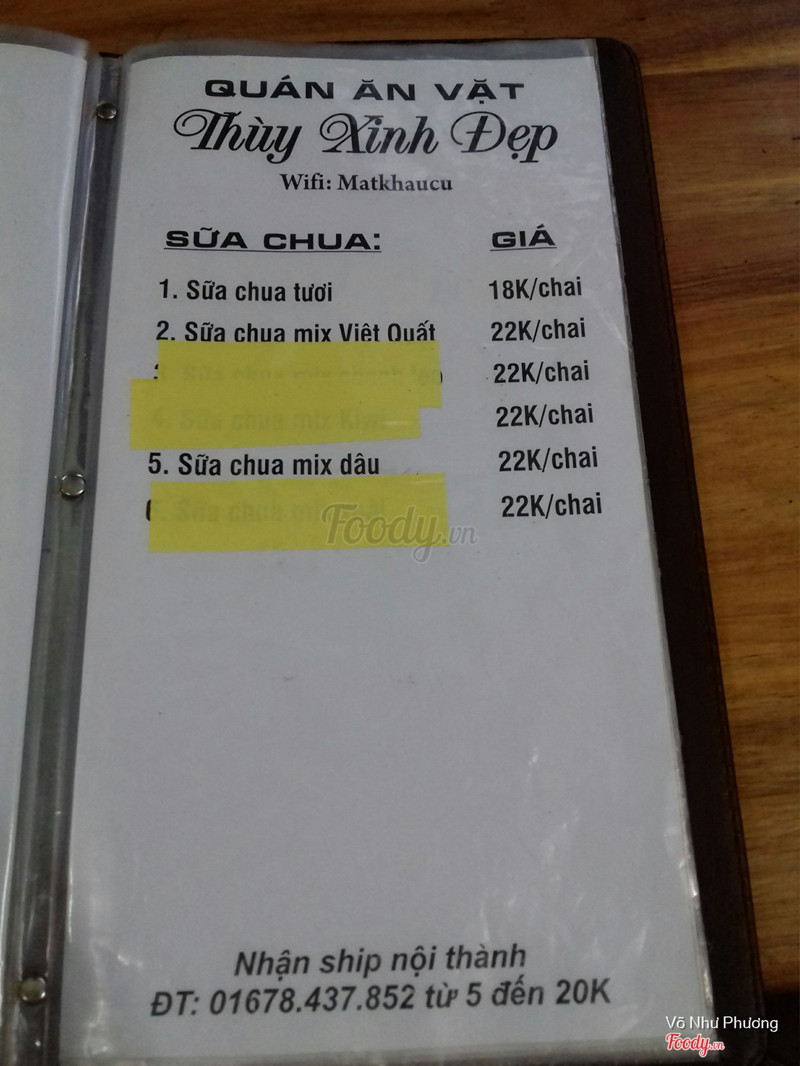 QUÁN ĂN VẶT
Thùy Xinh Đẹp
Wifi: Matkhaucu
SỮA CHUA: GIÁ
1. Sữa chua tươi 18K/chai
2. Sữa chua mix Việt Quất 22K/chai
Sữa chua mix 22K/chai
4. Sữa chua mix Kiwi 22K/chai
5. Sữa chua mix dâu 22K/chai
6. Sữa chua 22K/chai
Foody.vn
Nhận ship nội thành
ĐT: 01678.437.852 từ 5 đến 20K
Võ Như Phương
Foody.vn